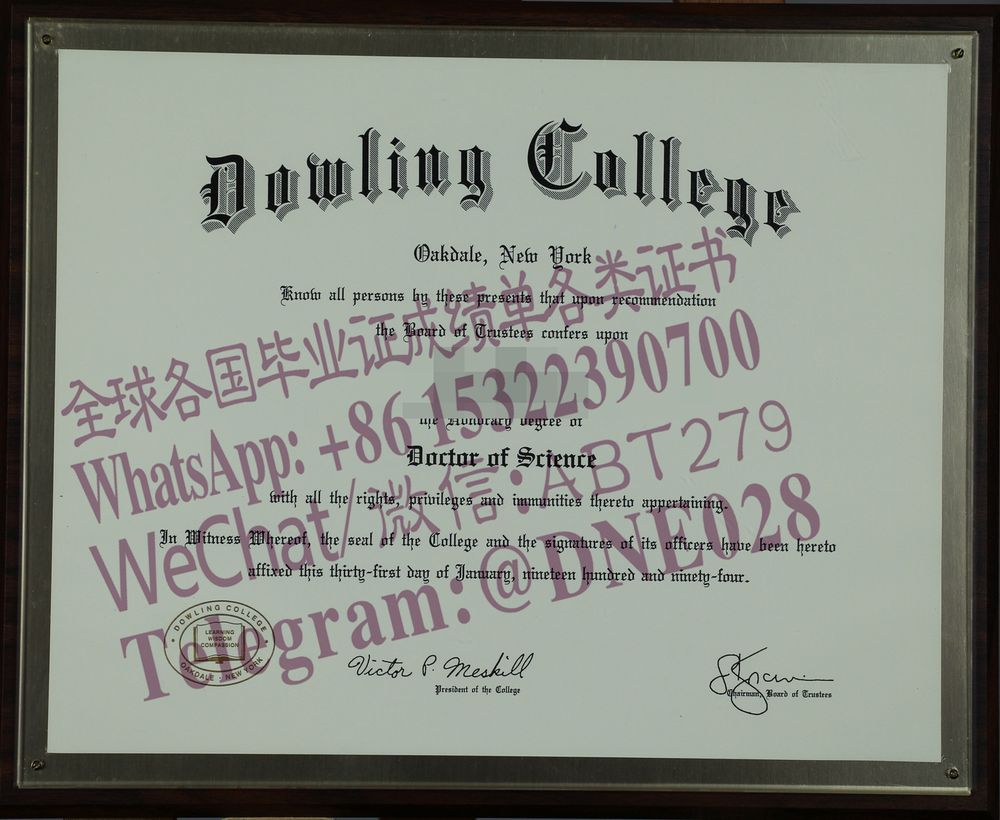 Dowling College
Oakdale, New York
Know all persons by these presents that upon recommendation
the Board of Trustees confers upon
the Honorary degree of
Doctor of Science
with all the rights, privileges and immunities thereto appertaining.
In Witness Whereof, the seal of the College and the signatures of its officers have been hereto
affixed this thirty-first day of January, nineteen hundred and ninety-four.
DOWLING COLLEGE
LEARNING
WISDOM
COMPASSION
OAKDALE · NEW YORK
Victor P. Meskill
President of the College
Chairman, Board of Trustees
全球各国毕业证成绩单各类证书
WhatsApp: +86 15322390700
WeChat/微信: ABT279
Telegram: @DNE028